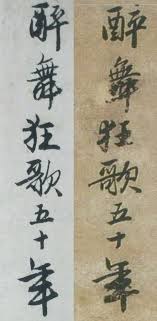 醉舞狂歌五十年
醉舞狂歌五十年